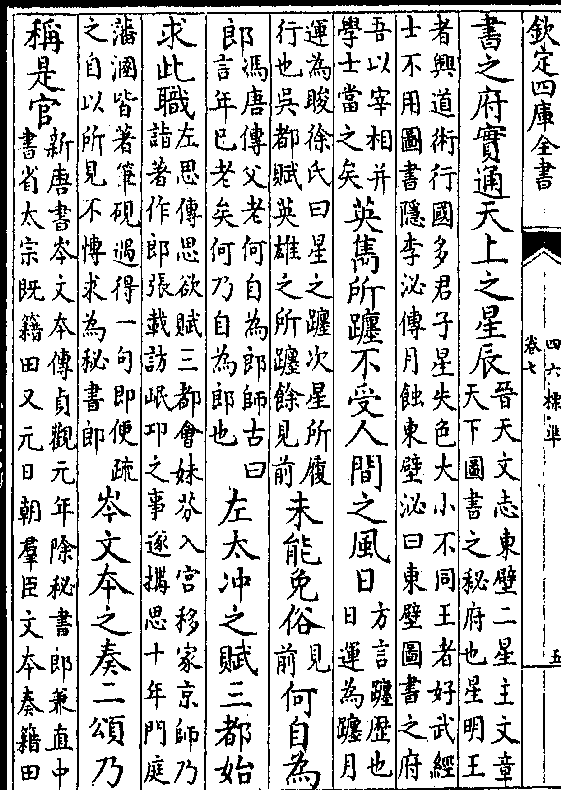 欽定四庫全書
四六標準
卷七
五
書之府實通天上之星辰
晉天文志東壁二星主文章
天下圖書之秘府也星明王
者興道術行國多君子星失色大小不同王者好武經
士不用圖書隱李泌傳月蝕東壁泌曰東壁圖書之府
吾以宰相并
學士當之矣
英雋所躔不受人間之風日
方言躔歷也
日運為躔月
運為睃徐氏曰星之躔次星所履
行也吳都賦英雄之所躔餘見前
未能免俗
見
前
何自為
郎
馮唐傳父老何自為郎師古曰
言年已老矣何乃自為郎也
左太冲之賦三都始
求此職
左思傳思欲賦三都會妹芬入宮移家京師乃
詣著作郎張載訪岷卭之事遂搆思十年門庭
藩溷皆著筆硯遇得一句即便疏
之自以所見不愽求為秘書郎
岑文本之奏二頌乃
稱是官
新唐書岑文本傳貞觀元年除秘書郎兼直中
書省太宗既籍田又元日朝羣臣文本奏籍田